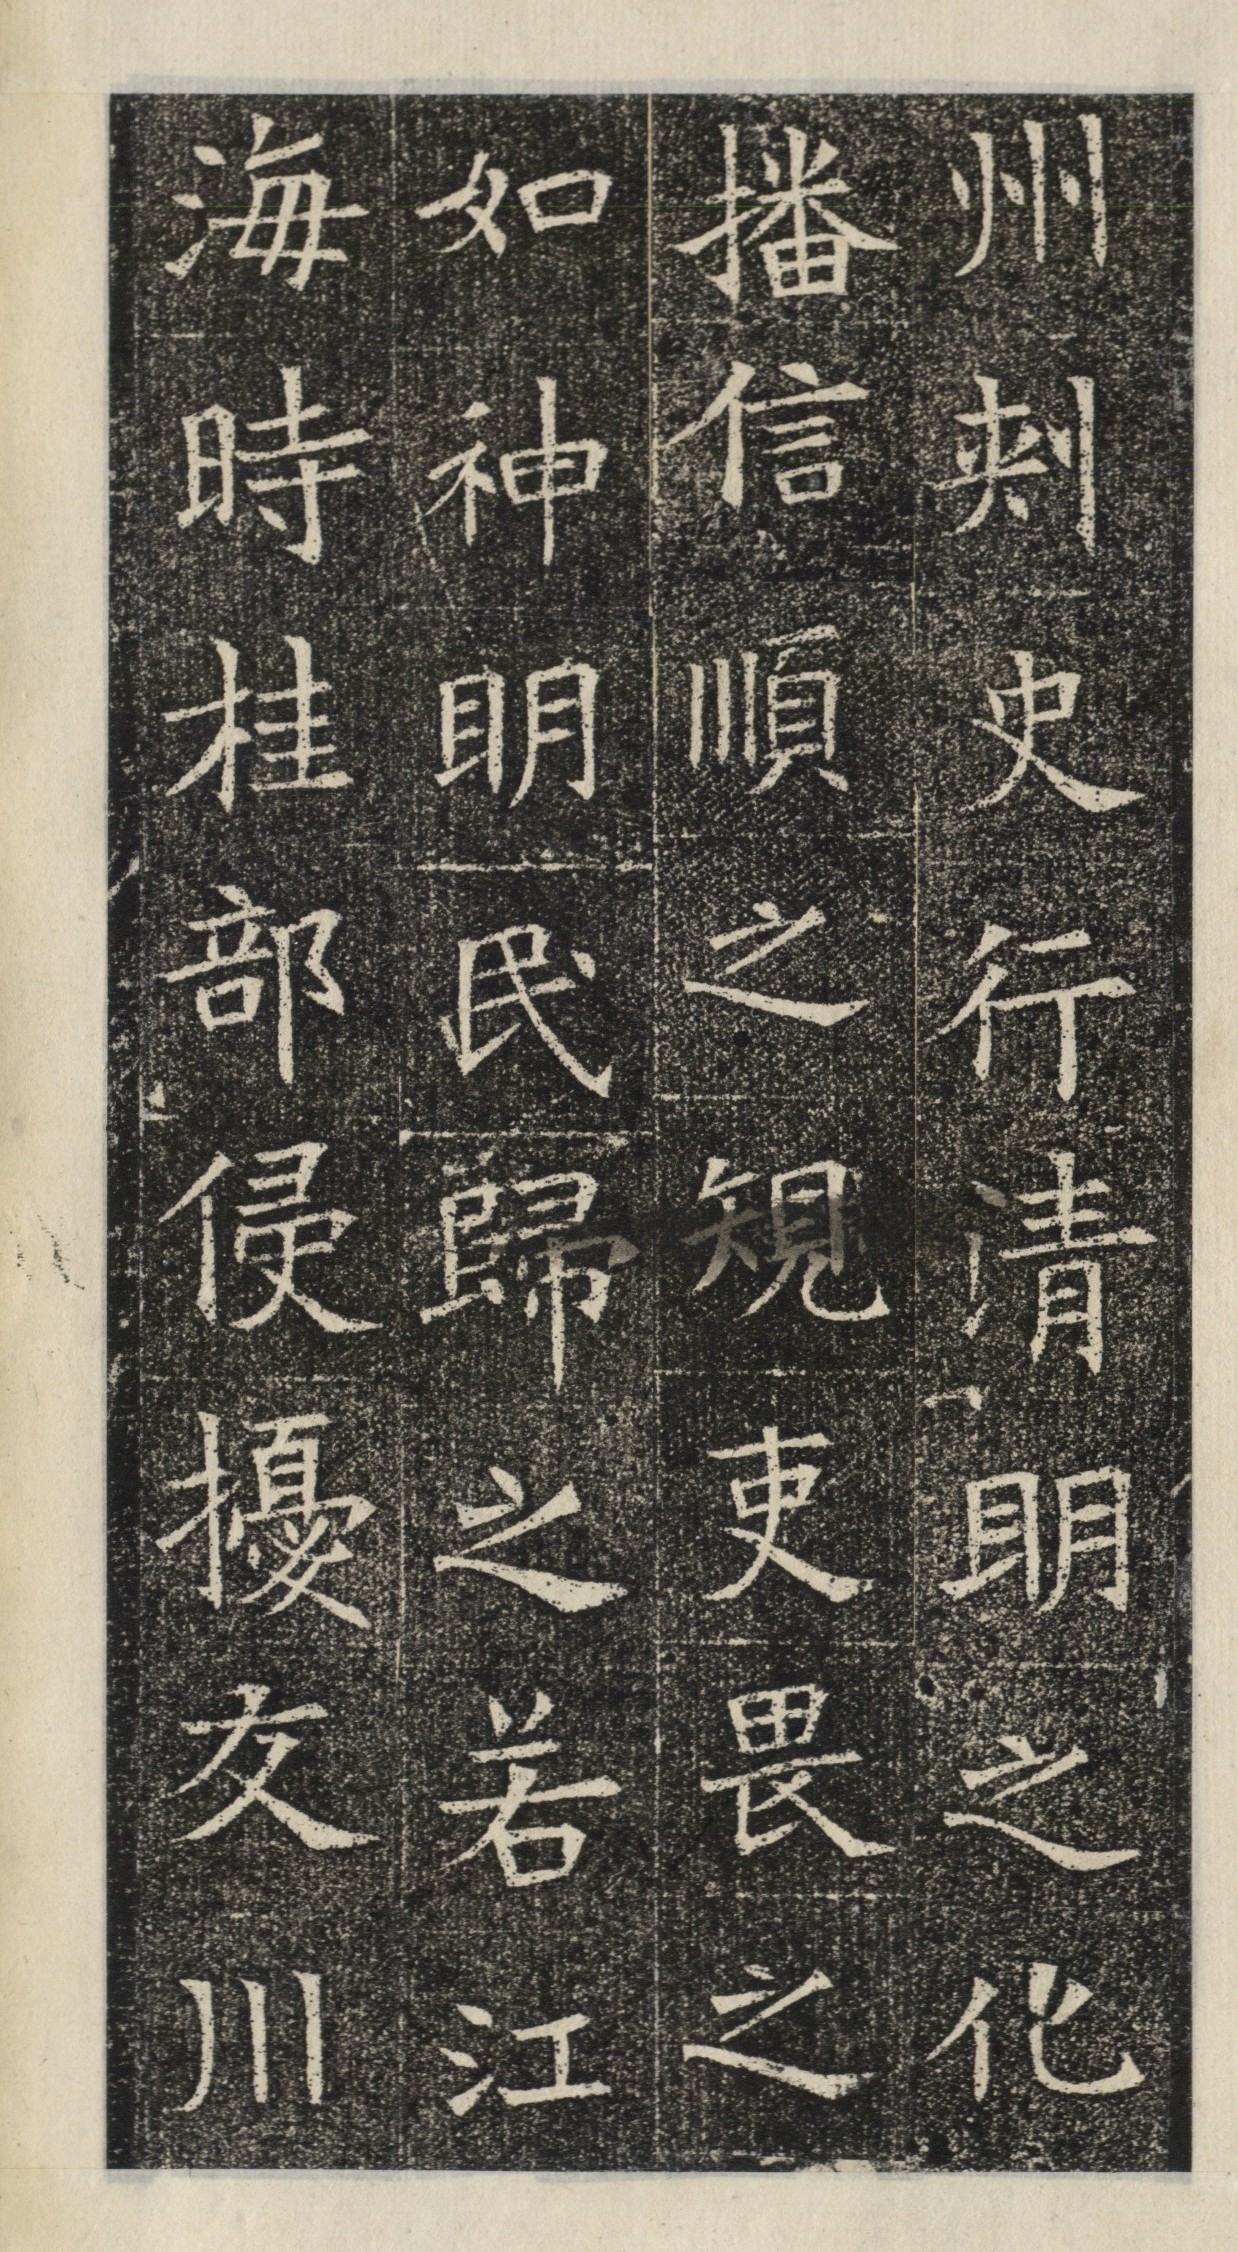 州刾史行清明之化
播信順之䂓吏畏之
如神明民歸之若江
海時桂部侵擾交川